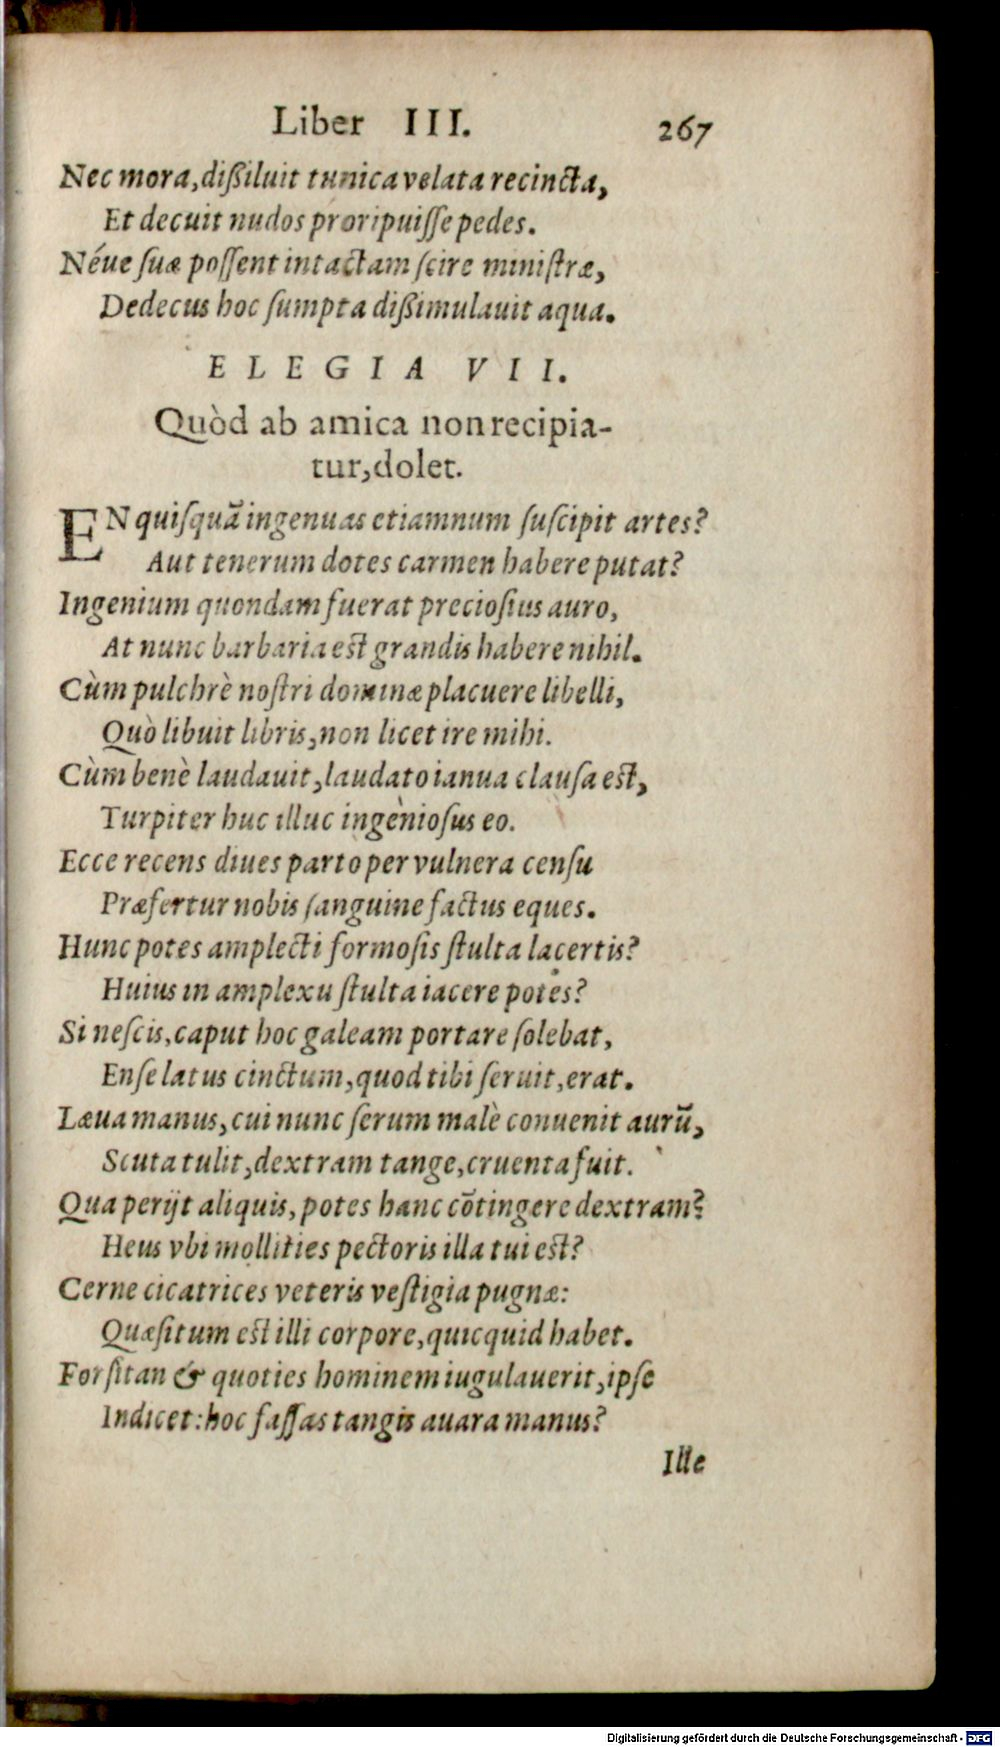 Liber III. 267
Nec mora, dißiluit tunica velata recincta,
Et decuit nudos proripuiſſe pedes.
Néue ſuæ poſſent intactam ſcire miniſtræ,
Dedecus hoc ſumpta dißimulauit aqua.
ELEGIA VII.
Quòd ab amica non recipia-
tur, dolet.
EN quiſquã ingenuas etiamnum ſuſcipit artes?
Aut tenerum dotes carmen habere putat?
Ingenium quondam fuerat precioſius auro,
At nunc barbaria est grandis habere nihil.
Cùm pulchrè noſtri dominæ placuere libelli,
Quò libuit libris, non licet ire mihi.
Cùm benè laudauit, laudato ianua clauſa est,
Turpiter huc illuc ingenioſus eo.
Ecce recens diues parto per vulnera cenſu
Præfertur nobis ſanguine factus eques.
Hunc potes amplecti formoſis ſtulta lacertis?
Huius in amplexu ſtulta iacere potes?
Si neſcis, caput hoc galeam portare ſolebat,
Enſe latus cinctum, quod tibi ſeruit, erat.
Læua manus, cui nunc ſerum malè conuenit aurũ,
Scuta tulit, dextram tange, cruenta fuit.
Qua perijt aliquis, potes hanc cõtingere dextram?
Heus vbi mollities pectoris illa tui est?
Cerne cicatrices veteris veſtigia pugnæ:
Quæſitum est illi corpore, quicquid habet.
Forſitan & quoties hominem iugulauerit, ipſe
Indicet: hoc faſſas tangis auara manus?
Ille
Digitalisierung gefördert durch die Deutsche Forschungsgemeinschaft - DFG